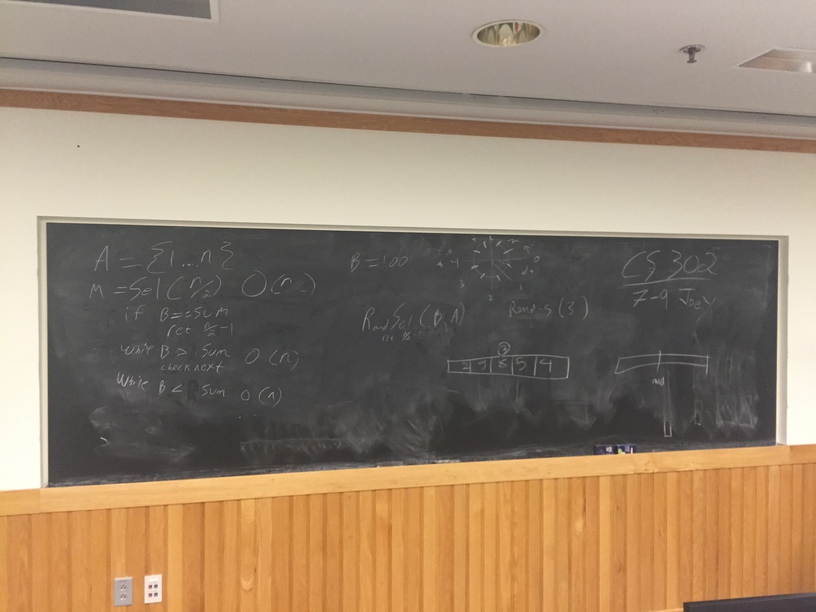 A = {1...n}
M = Sel(n/2) O(n)
if B == SUM
ret n/2 - 1
while B > SUM O(n)
check next
While B < SUM O(n)
B = 100
RandSel(B, A)
Rand-S(3)
2
3
8
5
4
CS 302
7-9 Joey
mid